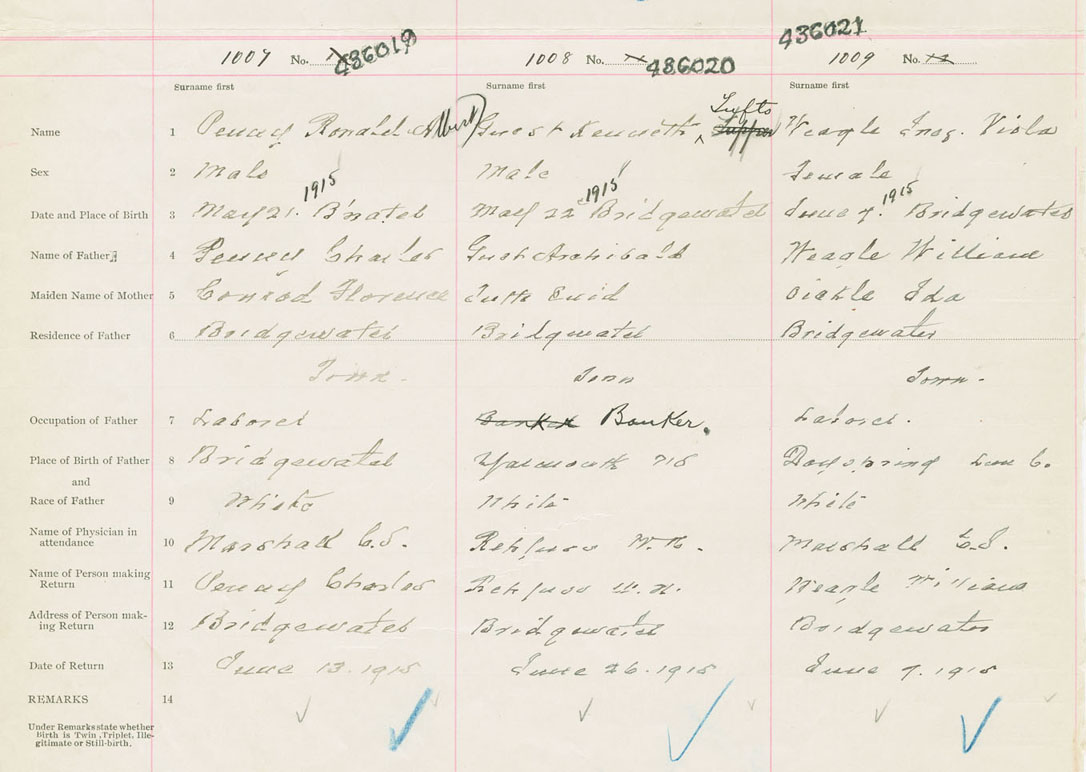 1007 No. 436019 1008 No. 436020 1009 No. 436021
Surname first Surname first Surname first
Tufts
Name 1 Penny Ronald Albert Guest Kenneth Weagle Inez. Viola
Sex 2 Male Male Female
1915 1915 1915
Date and Place of Birth 3 May 21. B'water May 22 Bridgewater June 7. Bridgewater
Name of Father 4 Penny Charles Guest Archibald Weagle William
Maiden Name of Mother 5 Conrod Florence Tufts Enid Ida
Residence of Father 6 Bridgewater Bridgewater Bridgewater
Town. Town Town.
Occupation of Father 7 Laborer Banker Banker. Laborer.
Place of Birth of Father 8 Bridgewater Yarmouth NS Dayspring Lun Co.
and
Race of Father 9 White White White
Name of Physician in
attendance 10 Marshall C.S. Rehfuss W.N. Marshall C.S.
Name of Person making
Return 11 Penny Charles Rehfuss W.N. Weagle William
Address of Person mak-
ing Return 12 Bridgewater Bridgewater Bridgewater
Date of Return 13 June 13. 1915 June 26. 1915 June 9. 1915
REMARKS 14
Under Remarks state whether
Birth is Twin, Triplet, Ille-
gitimate or Still-birth.